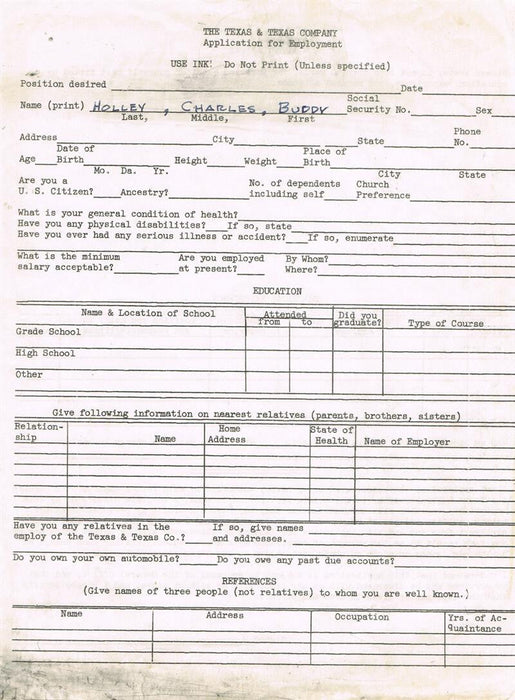 THE TEXAS & TEXAS COMPANY
Application for Employment
USE INK! Do Not Print (Unless specified)
Position desired Date
Name (print) HOLLEY , CHARLES, BUDDY Social Security No. Sex
Last, Middle, First
Address City State Phone No.
Age Date of Birth Height Weight Place of Birth
Mo. Da. Yr. City State
Are you a U. S. Citizen? Ancestry? No. of dependents including self Church Preference
What is your general condition of health?
Have you any physical disabilities? If so, state
Have you ever had any serious illness or accident? If so, enumerate
What is the minimum salary acceptable? Are you employed at present? By Whom? Where?
EDUCATION
Name & Location of School Attended from to Did you graduate? Type of Course
Grade School
High School
Other
Give following information on nearest relatives (parents, brothers, sisters)
Relation-ship Name Home Address State of Health Name of Employer
Have you any relatives in the employ of the Texas & Texas Co.? If so, give names and addresses.
Do you own your own automobile? Do you owe any past due accounts?
REFERENCES
(Give names of three people (not relatives) to whom you are well known.)
Name Address Occupation Yrs. of Ac-quaintance